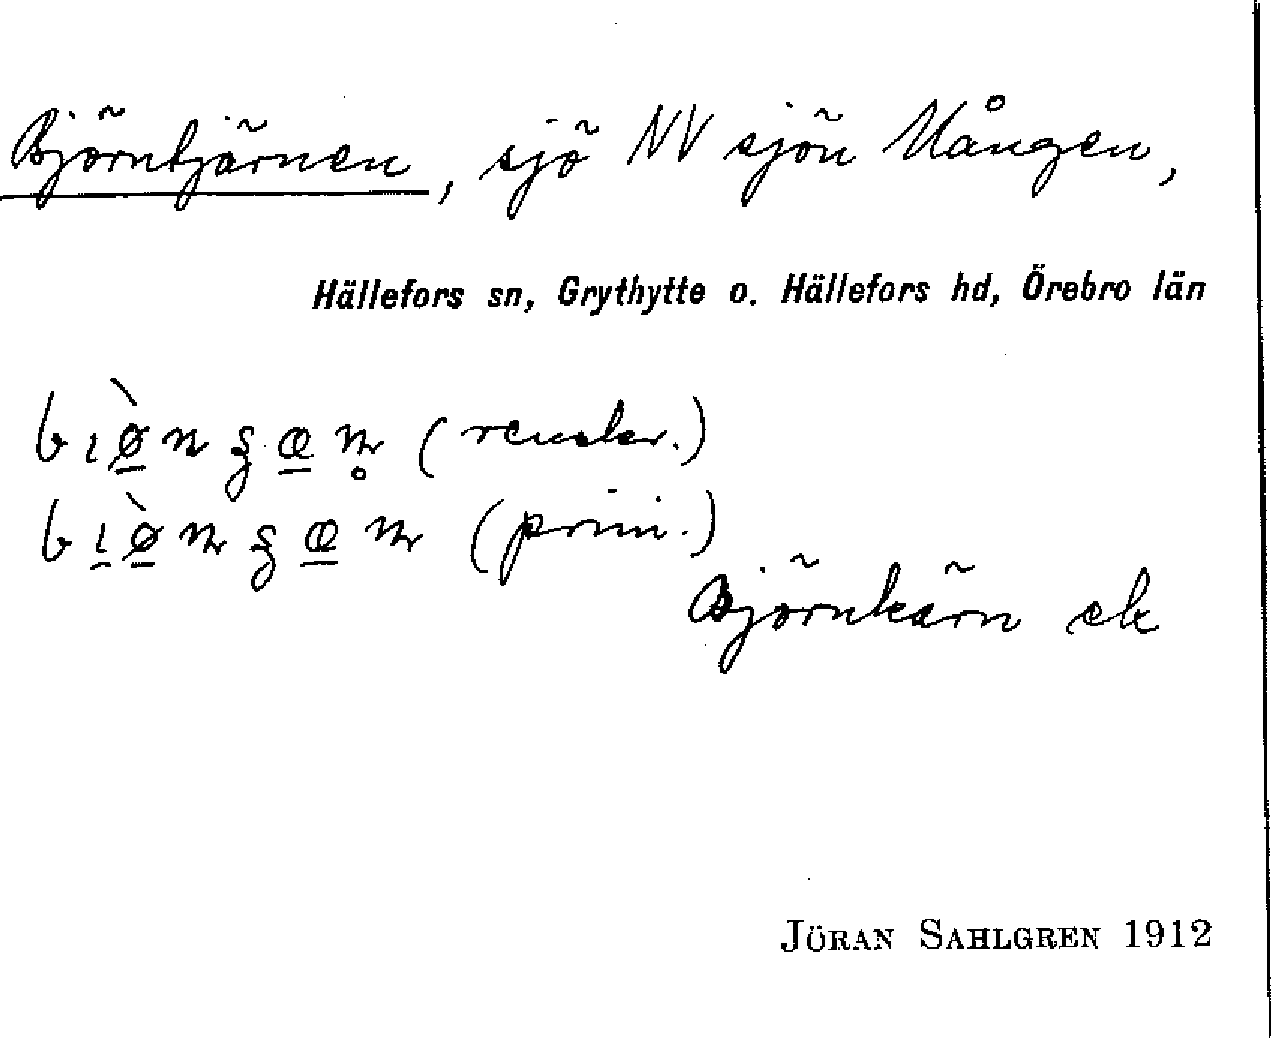 Björntjärnen, sjö NV sjön Mången,
Hällefors sn, Grythytte o. Hällefors hd, Örebro län
(renslev.)
(prim.)
Björnkärn ek
JÖRAN SAHLGREN 1912